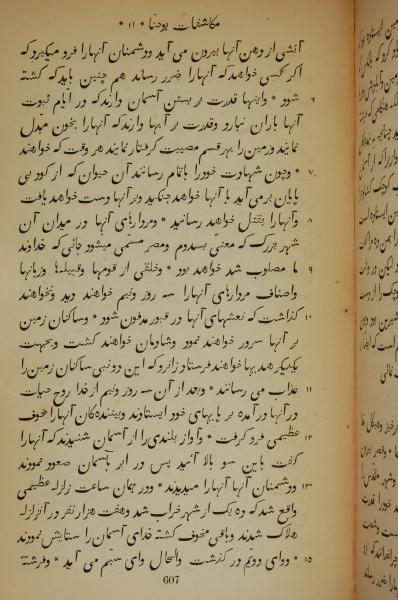 * مکاشفات یوحنا * ۱۱ *
آتشی از دهن آنها بیرون می آید و دشمنان آنها را فرو میگیرد که
اکر کسی خواهد که آنها را ضرر رساند هم چنین باید که کشته
۶ شود * و اینها قدرت بر بستن آسمان دارند که در ایّام نبوت
آنها باران نبارد و قدرت بر آبها دارند که آنها را بخون مبدل
نمایند و زمین را بهر قسم مصیبت کرفتار نمایند هر وقت که خواهند
۷ * و چون شهادت خود را باتمام رسانند آن حیوان که از کود بی
پایان بر می آید با آنها خواهد جنکید و بر آنها دست خواهد یافت
۸ و آنها را بقتل خواهد رسانید * و مردارهای آنها در میدان آن
شهر بزرک که بمعنی بسدوم و مصر مسمی میشود جائی که خداوند
۹ ما مصلوب شد خواهد بود * و خلقی از قومها و قبیله‌ها و زبانها
و اصناف مردارهای آنها را سه روز و نیم خواهند دید و نخواهند
۱۰ کذاشت که نعشهای آنها در قبور مدفون شود * و ساکنان زمین
بر آنها سرور خواهند نمود و شادمان خواهند کشت و بجهت
یکدیکر هدیها خواهند فرستاد زانرو که این دو نبی ساکنان زمین را
۱۱ عذاب می رسانند * و بعد از آن سه روز و نیم از خدا روح حیات
در آنها در آمده بر پایهای خود ایستادند و بیننده‌کان آنها را خوف
۱۲ عظیمی فرو کرفت * و آواز بلندی را از آسمان شنیدند که آنها را
کفت باین سو بالا آئید پس در ابر بآسمان صعود نمودند
۱۳ و دشمنان آنها آنها را میدیدند * و در همان ساعت زلزلهٔ عظیمی
واقع شد که ده یک از شهر خراب شد و هفت هزار نفر در آن زلزله
هلاک شدند و باقی مخوف کشته خدای آسمان را ستایش نمودند
۱۵ * و وای دویّم در کذشت و الحال وای سیّم می آید * و فرشتهٔ
607